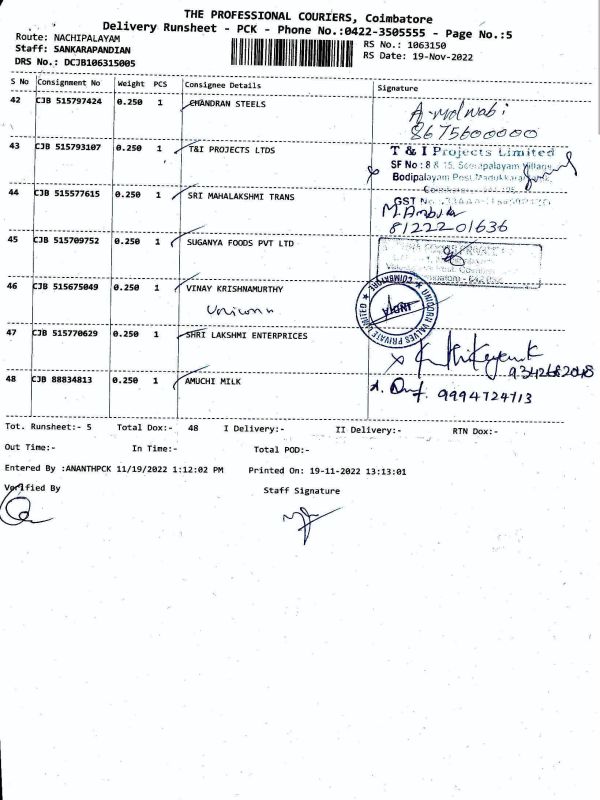 THE PROFESSIONAL COURIERS, Coimbatore
Delivery Runsheet - PCK - Phone No.:0422-3505555 - Page No.:5
Route: NACHIPALAYAM
RS No.: 1063150
Staff: SANKARAPANDIAN
RS Date: 19-Nov-2022
DRS No.: DCJB106315005
S No Consignment No Weight PCS Consignee Details Signature
42 CJB 515797424 0.250 1 CHANDRAN STEELS
8675600000
43 CJB 515793107 0.250 1 T&I PROJECTS LTDS
T & I Projects Limited
SF No : 8 & 15,
Bodipalayam Post,
44 CJB 515577615 0.250 1 SRI MAHALAKSHMI TRANS
GST No
81222-01636
45 CJB 515709752 0.250 1 SUGANYA FOODS PVT LTD
46 CJB 515675049 0.250 1 VINAY KRISHNAMURTHY
Unicorn
UNICORN VALVES PRIVATE LIMITED
COIMBATORE
INDIA
47 CJB 515770629 0.250 1 SHRI LAKSHMI ENTERPRICES
48 CJB 88834813 0.250 1 AMUCHI MILK
9994724713
Tot. Runsheet:- 5 Total Dox:- 48 I Delivery:- II Delivery:- RTN Dox:-
Out Time:- In Time:- Total POD:-
Entered By :ANANTHPCK 11/19/2022 1:12:02 PM Printed On: 19-11-2022 13:13:01
Verified By Staff Signature